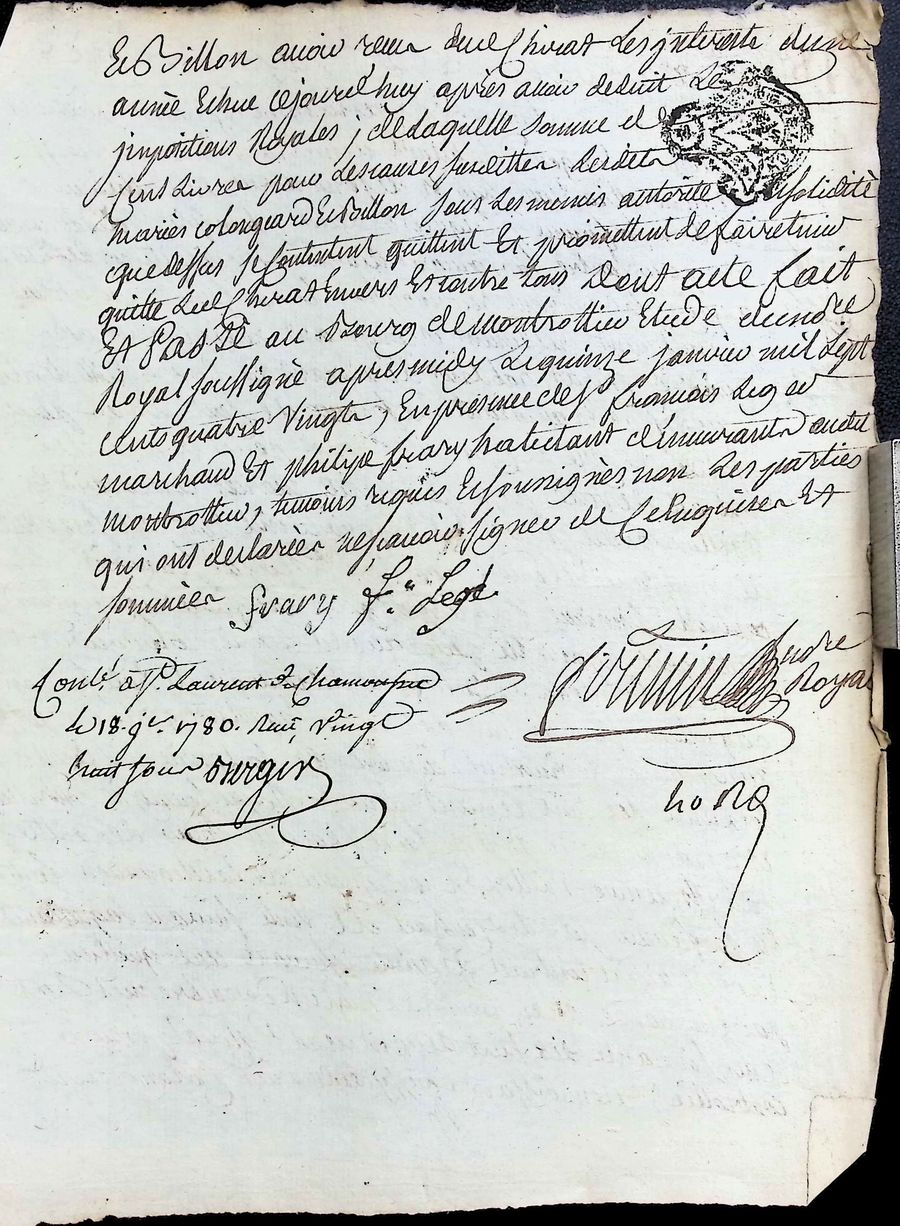 Et Billon avoir recu dud Chirat Les jnterets dune
année Echue cejourd'huy après avoir deduit Les
jmpositions Royales ; de Laquelle somme et de
Cent Livres pour Les causes susdittes Lesdits
mariés colongeard Et Billon sous Les memes autorité solidité
que dessus se Contentent quittent Et promettent de faire tenir
quitte Led Chirat Envers Et contre tous Dont acte fait
Et Passé au Bourg de montrottier Etude dundre
Royal soussigné apres midy Le quinze janvier mil Sept
cents quatre Vingts, En presence de Sr francois Leger
marchand Et philipe frary habitants demeurants audit
montrottier, temoins requis Et soussignés non Les parties
qui ont declarées ne scavoir signer de Ce Enquises Et
sommées frary fs Legé
Conlé. à St. Laurent de Chamousset
Le 18. jer. 1780. Reçu Vingt
huit sous
ndre
Royal